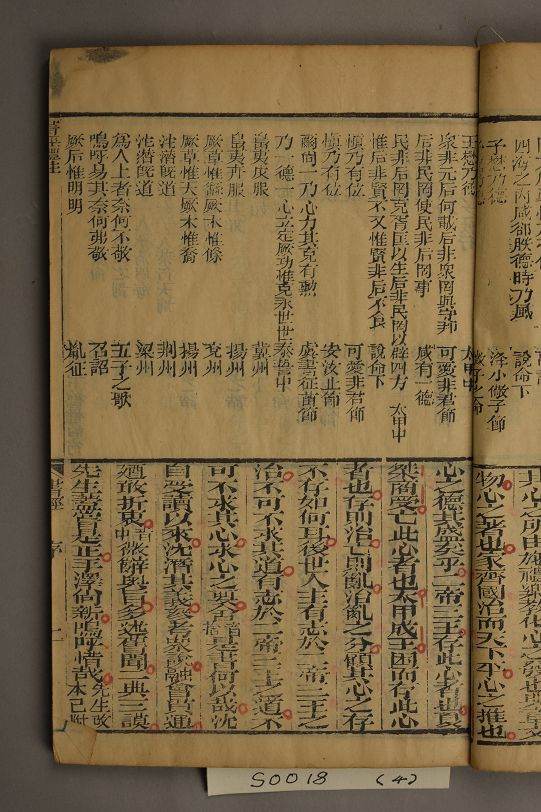 四海之內咸仰朕德時乃風
說命下
子懋乃德
洚水儆予節
王懋乃德
太甲中
衆非元后何戴后非衆罔與守邦
可愛非君節
后非民罔使民非后罔事
咸有一德
民非后罔克胥匡以生后非民罔以辟四方
太甲中
惟后非賢不乂惟賢非后不食
說命下
愼乃有位
可愛非君節
愼乃有位
安汝止節
爾尚一乃心力其克有勳
虞書征苗節
乃一德一心立定厥功惟克永世
泰誓中
島夷皮服
冀州
島夷卉服
揚州
厥草惟繇厥木惟條
兗州
厥草惟夭厥木惟喬
揚州
沱潛旣道
荆州
沱潛旣道
梁州
爲人上者奈何不敬
五子之歌
嗚呼曷其奈何弗敬
召誥
厥后惟明明
胤征
物心之著也家齊國治而天下平心之推也
心之德其盛矣乎二帝三王存此心者也夏
桀商受亡此心者也太甲成王困而存此心
者也存則治亡則亂治亂之分顧其心之存
不存如何耳後世人主有志於二帝三王之
治不可不求其道有志於二帝三王之道不
可不求其心求心之要舍是書何以哉沈
自受讀以來沈潛其義參考衆說融會貫通
迺敢折衷微辭奧旨多述舊聞二典三謨
先生蓋嘗是正手澤尚新嗚呼惜哉先生改本已附
書經
序
S0018 (4)